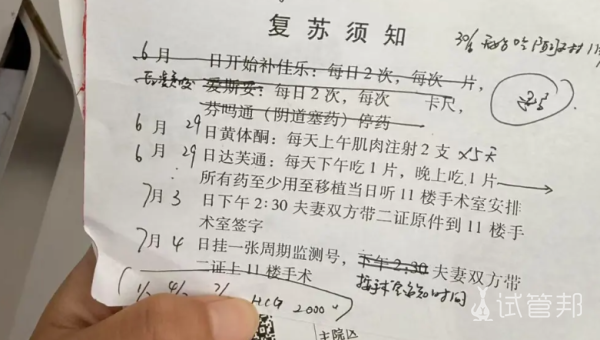 复苏须知
30/6
6月 日开始补佳乐：每日2次，每次 片，
爱斯妥：每日2次，每次 卡尺，
芬吗通（阴道塞药）停药
6月29日黄体酮：每天上午肌肉注射2支 x5天
6月29日达芙通：每天下午吃1片，晚上吃1片
所有药至少用至移植当日听11楼手术室安排
7月3日下午2:30夫妻双方带二证原件到11楼手
术室签字
7月4日挂一张周期监测号，下午2:30夫妻双方带
二证上11楼手术 按手术室通知时间
HCG 2000
主院区
试管邦